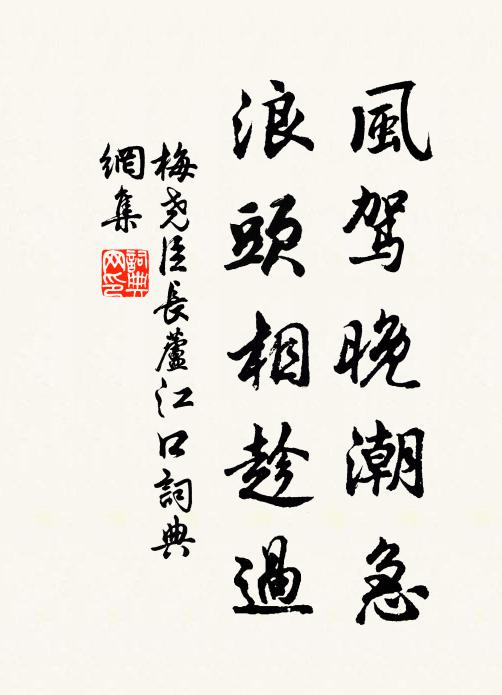 風駕晚潮急
浪頭相趁過
梅尧臣長蘆江口詞典
網集
詞典
网印